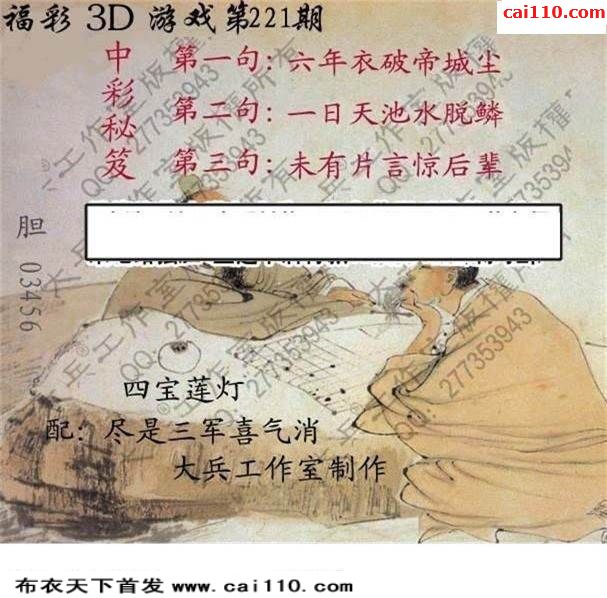 福彩 3D 游戏第221期
cai110.com
中彩秘笈
第一句：六年衣破帝城尘
第二句：一日天池水脱鳞
第三句：未有片言惊后辈
胆 03456
四宝莲灯
配：尽是三军喜气消
大兵工作室制作
大兵工作室版权所有
QQ：277353943
布衣天下首发 www.cai110.com